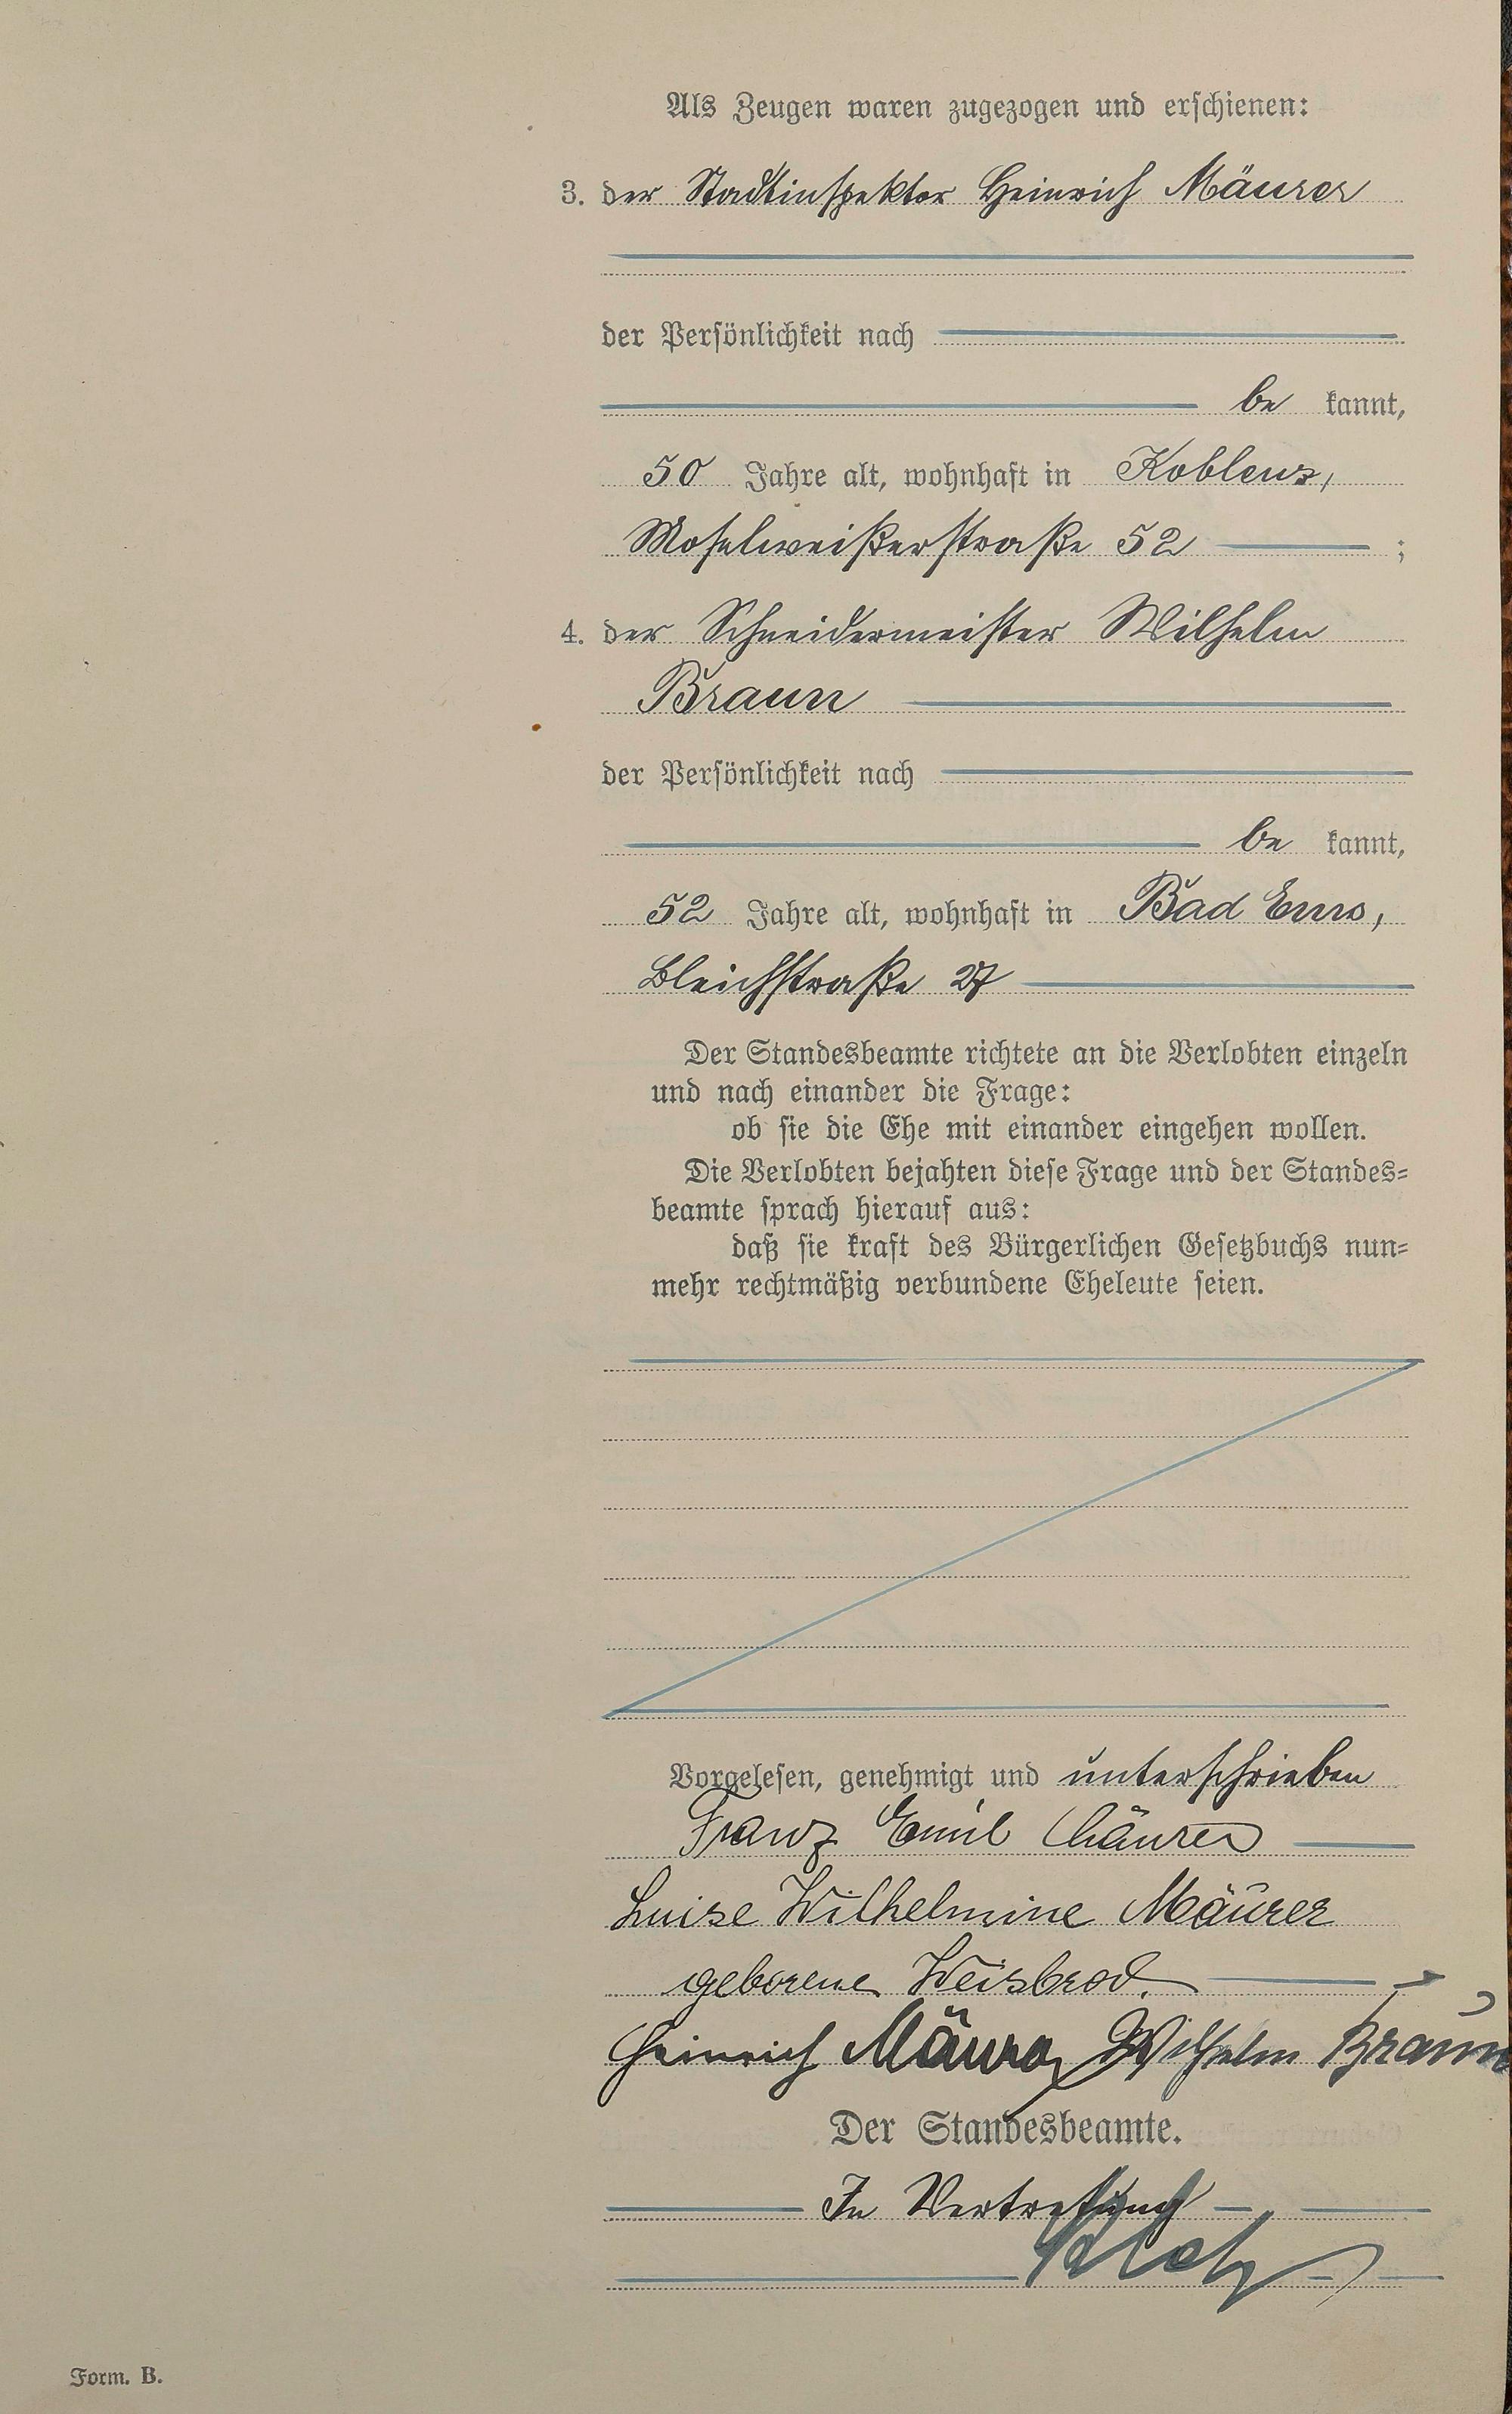 Als Zeugen waren zugezogen und erschienen:
3. der Stadtinspektor Heinrich Mäurer
der Persönlichkeit nach
be kannt,
50 Jahre alt, wohnhaft in Koblenz,
Moselweißerstraße 52 ;
4. der Schneidermeister Wilhelm
Braun
der Persönlichkeit nach
be kannt,
52 Jahre alt, wohnhaft in Bad Ems,
Bleichstraße 27
Der Standesbeamte richtete an die Verlobten einzeln
und nach einander die Frage:
ob sie die Ehe mit einander eingehen wollen.
Die Verlobten bejahten diese Frage und der Standes-
beamte sprach hierauf aus:
daß sie kraft des Bürgerlichen Gesetzbuchs nun-
mehr rechtmäßig verbundene Eheleute seien.
Vorgelesen, genehmigt und unterschrieben
Franz Emil Mäurer
Luise Wilhelmine Mäurer
geborene Weisbrod.
Heinrich Mäurer Wilhelm Braun
Der Standesbeamte.
In Vertretung
Form. B.